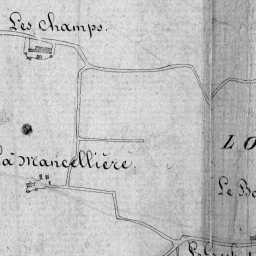 Les Champs.
LO
La Mancellière.
Le Bo